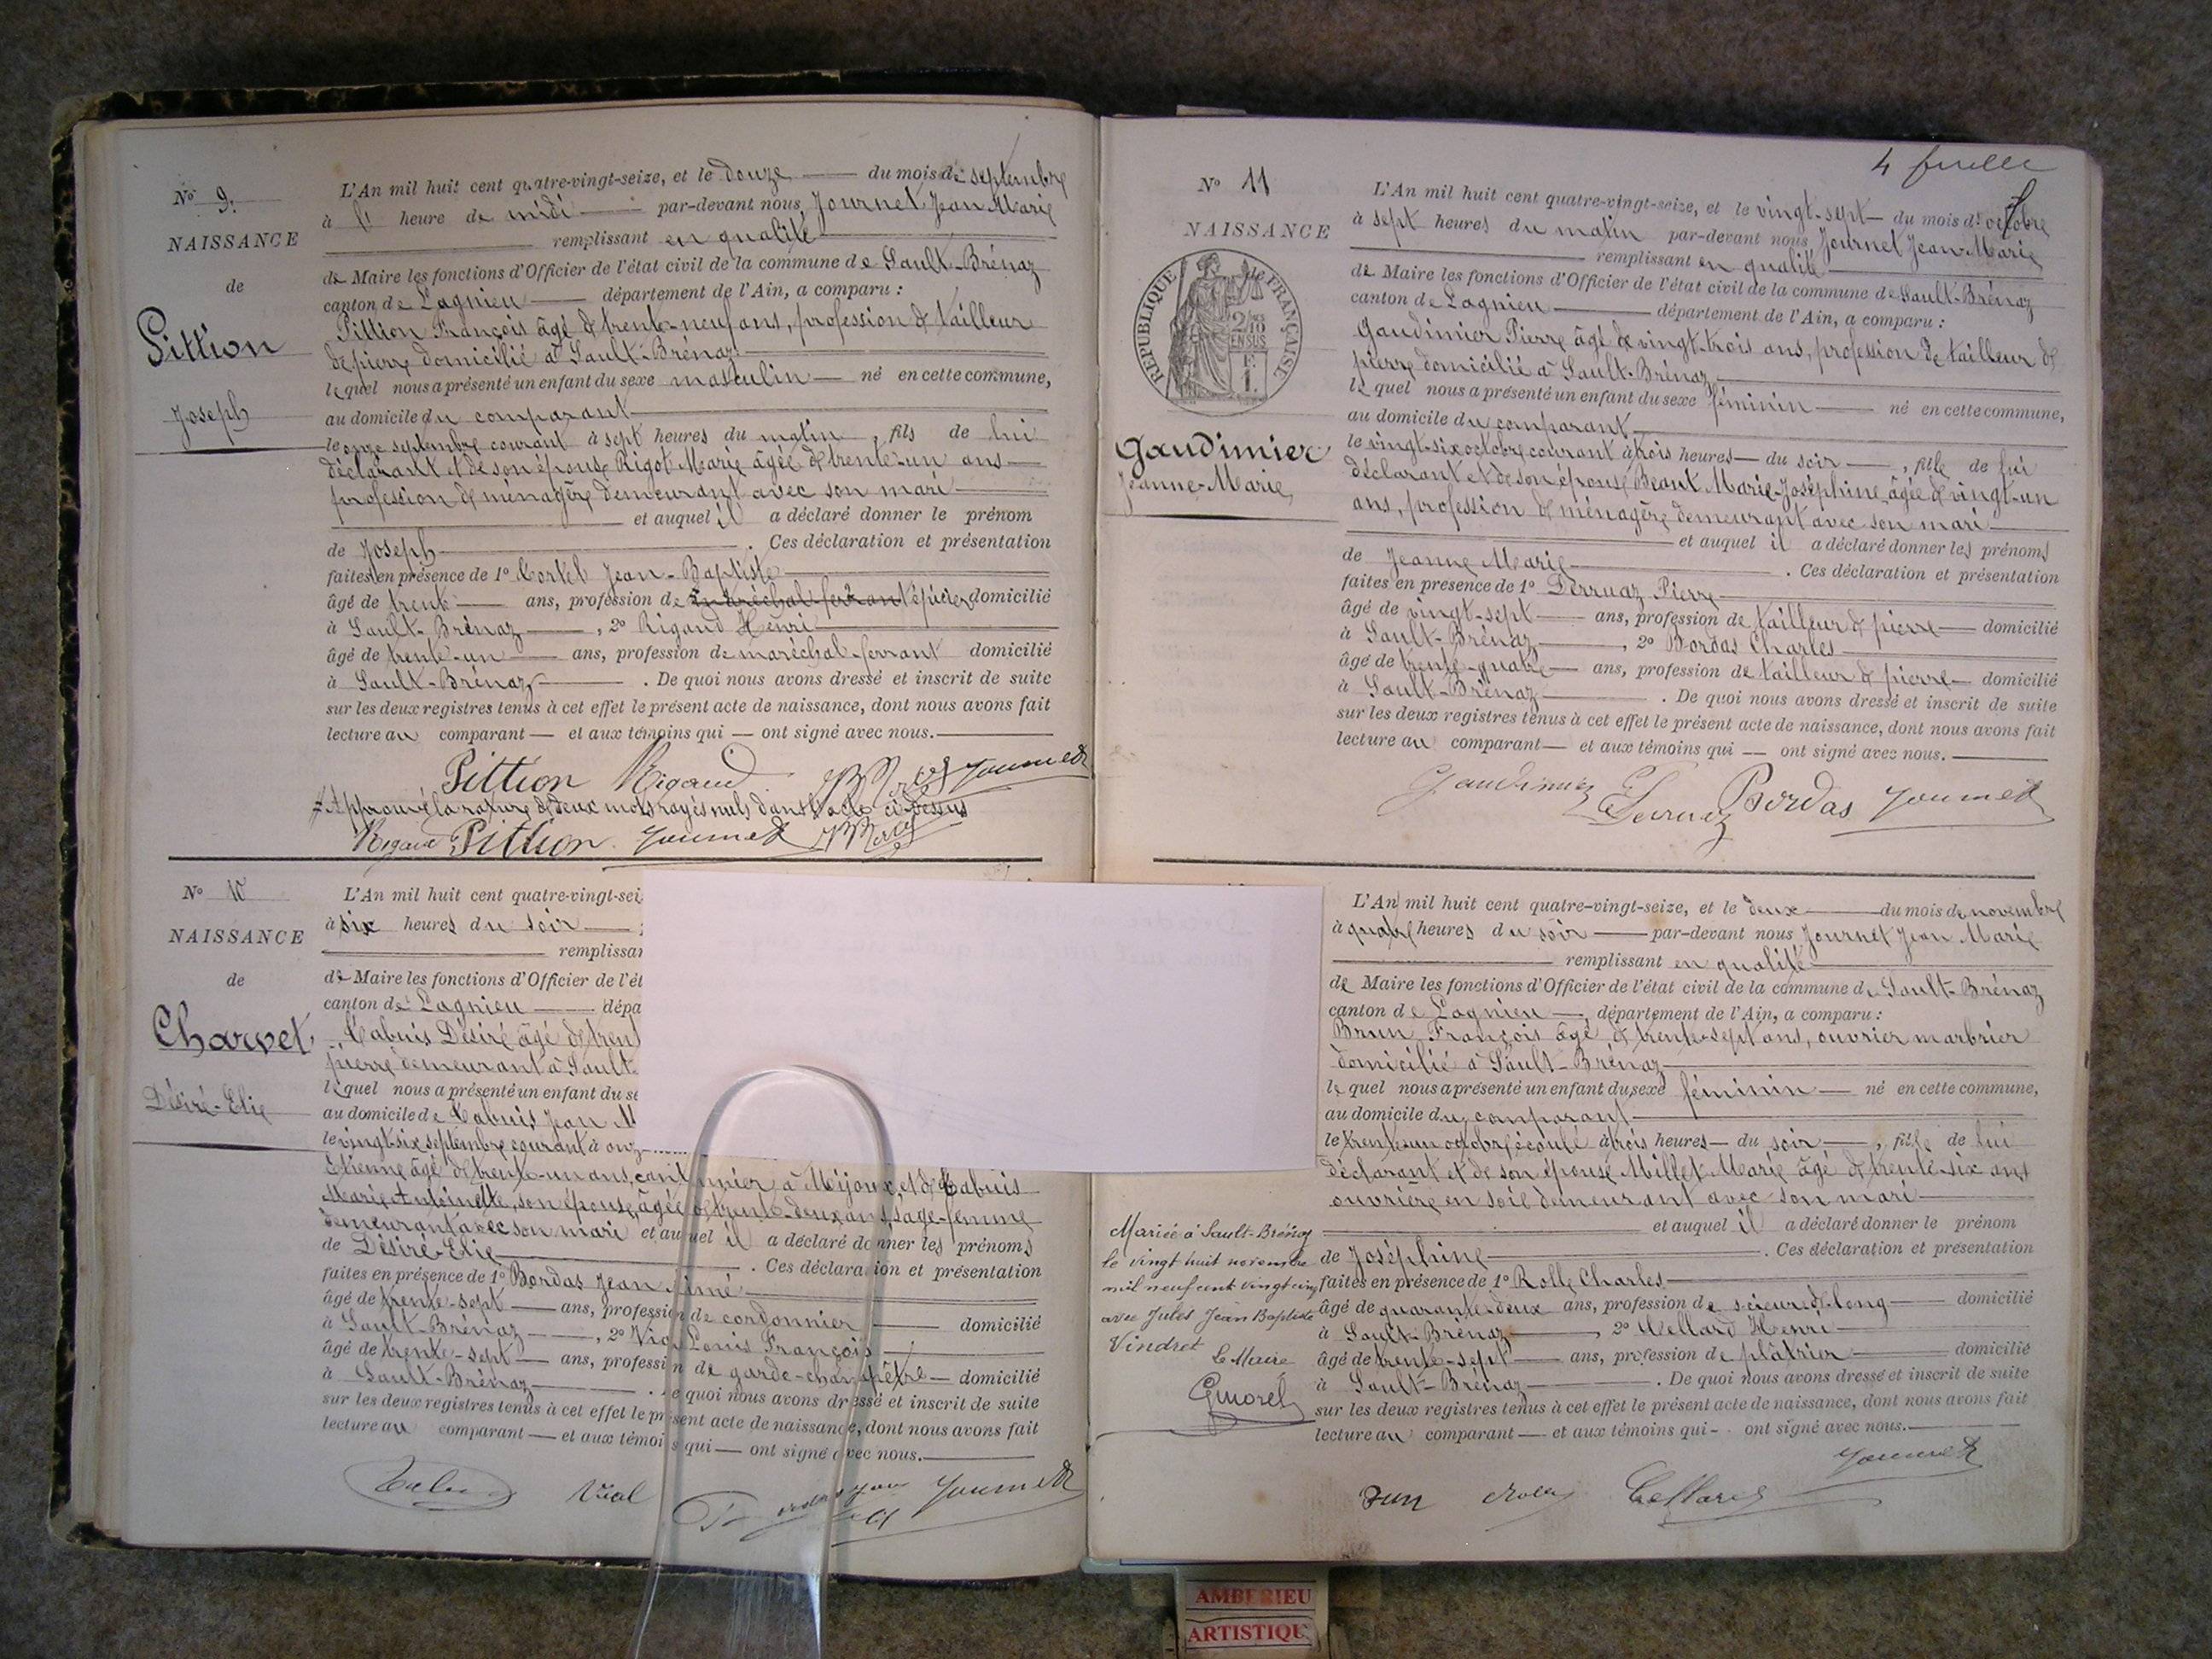 No 9.
NAISSANCE
de
Pittion
Joseph
L'An mil huit cent quatre-vingt-seize, et le douze du mois de septembre
à l' heure de midi par-devant nous Journet Jean Marie
remplissant en qualité
de Maire les fonctions d'Officier de l'état civil de la commune de Sault-Brénaz
canton de Lagnieu département de l'Ain, a comparu :
Pittion François âgé de trente-neuf ans, profession de tailleur
de pierre domicilié à Sault-Brénaz
lequel nous a présenté un enfant du sexe masculin né en cette commune,
au domicile du comparant
le onze septembre courant à sept heures du matin, fils de lui
déclarant et de son épouse Rigot Marie âgée de trente-un ans
profession de ménagère demeurant avec son mari
et auquel il a déclaré donner le prénom
de Joseph. Ces déclaration et présentation
faites en présence de 1° Jean-Baptiste
âgé de trente ans, profession de maréchal ferrant épicier domicilié
à Sault-Brénaz, 2° Rigaud Henri
âgé de trente-un ans, profession de maréchal-ferrant domicilié
à Sault-Brénaz. De quoi nous avons dressé et inscrit de suite
sur les deux registres tenus à cet effet le présent acte de naissance, dont nous avons fait
lecture au comparant et aux témoins qui ont signé avec nous.
Pittion Rigaud Journet
Approuvé la rature de deux mots rayés nuls dans l'acte ci-dessus
Rigaud Pittion Journet
No 10
NAISSANCE
de
Charvet
Désiré-Elie
L'An mil huit cent quatre-vingt-sei
à six heures du soir
remplissan
de Maire les fonctions d'Officier de l'ét
canton de Lagnieu dépa
Cabuis Désiré âgé de tren
pierre demeurant à Sault
lequel nous a présenté un enfant du se
au domicile de Cabuis Jean M
le vingt-six septembre courant à onz
Etienne âgé de trente-un ans, cantonnier à Mijoux, et de Cabuis
Marie Antoinette, son épouse, âgée de trente-deux ans, sage-femme
demeurant avec son mari et auquel il a déclaré donner les prénoms
de Désiré-Elie. Ces déclaration et présentation
faites en présence de 1° Bordas Jean Aimé
âgé de trente-sept ans, profession de cordonnier domicilié
à Sault-Brénaz, 2° Vial Louis François
âgé de trente-sept ans, profession de garde-champêtre domicilié
à Sault-Brénaz. De quoi nous avons dressé et inscrit de suite
sur les deux registres tenus à cet effet le présent acte de naissance, dont nous avons fait
lecture au comparant et aux témoins qui ont signé avec nous.
Vial Journet
4 feuille
No 11
NAISSANCE
RÉPUBLIQUE FRANÇAISE
2/10 EN SUS
F. 1.
Gaudimier
Jeanne-Marie
L'An mil huit cent quatre-vingt-seize, et le vingt-sept du mois d'octobre
à sept heures du matin par-devant nous Journet Jean-Marie
remplissant en qualité
de Maire les fonctions d'Officier de l'état civil de la commune de Sault-Brénaz
canton de Lagnieu département de l'Ain, a comparu :
Gaudimier Pierre âgé de vingt-trois ans, profession de tailleur de
pierre domicilié à Sault-Brénaz
lequel nous a présenté un enfant du sexe féminin né en cette commune,
au domicile du comparant
le vingt-six octobre courant à trois heures du soir, fille de lui
déclarant et de son épouse Beaut Marie-Joséphine âgée de vingt-un
ans, profession de ménagère demeurant avec son mari
et auquel il a déclaré donner les prénoms
de Jeanne Marie. Ces déclaration et présentation
faites en présence de 1° Derruaz Pierre
âgé de vingt-sept ans, profession de tailleur de pierre domicilié
à Sault-Brénaz, 2° Bordas Charles
âgé de trente-quatre ans, profession de tailleur de pierre domicilié
à Sault-Brénaz. De quoi nous avons dressé et inscrit de suite
sur les deux registres tenus à cet effet le présent acte de naissance, dont nous avons fait
lecture au comparant et aux témoins qui ont signé avec nous.
Gaudimier Derruaz Bordas Journet
L'An mil huit cent quatre-vingt-seize, et le deux du mois de novembre
à quatre heures du soir par-devant nous Journet Jean Marie
remplissant en qualité
de Maire les fonctions d'Officier de l'état civil de la commune de Sault-Brénaz
canton de Lagnieu, département de l'Ain, a comparu :
Brun François âgé de trente-sept ans, ouvrier marbrier
domicilié à Sault-Brénaz
lequel nous a présenté un enfant du sexe féminin né en cette commune,
au domicile du comparant
le trente-un octobre écoulé à trois heures du soir, fille de lui
déclarant et de son épouse Millet Marie âgé de trente-six ans
ouvrière en soie demeurant avec son mari
et auquel il a déclaré donner le prénom
de Joséphine. Ces déclaration et présentation
faites en présence de 1° Rolle Charles
âgé de quarante-deux ans, profession de scieur de long domicilié
à Sault-Brénaz, 2° Cellard Henri
âgé de trente-sept ans, profession de plâtrier domicilié
à Sault-Brénaz. De quoi nous avons dressé et inscrit de suite
sur les deux registres tenus à cet effet le présent acte de naissance, dont nous avons fait
lecture au comparant et aux témoins qui ont signé avec nous.
Mariée à Sault-Brénaz
le vingt huit novembre
mil neuf cent vingt cinq
avec Jules Jean Baptiste
Vindret
Le Maire
Gmorel
run Rolle Cellard Journet
AMBERIEU
ARTISTIQU